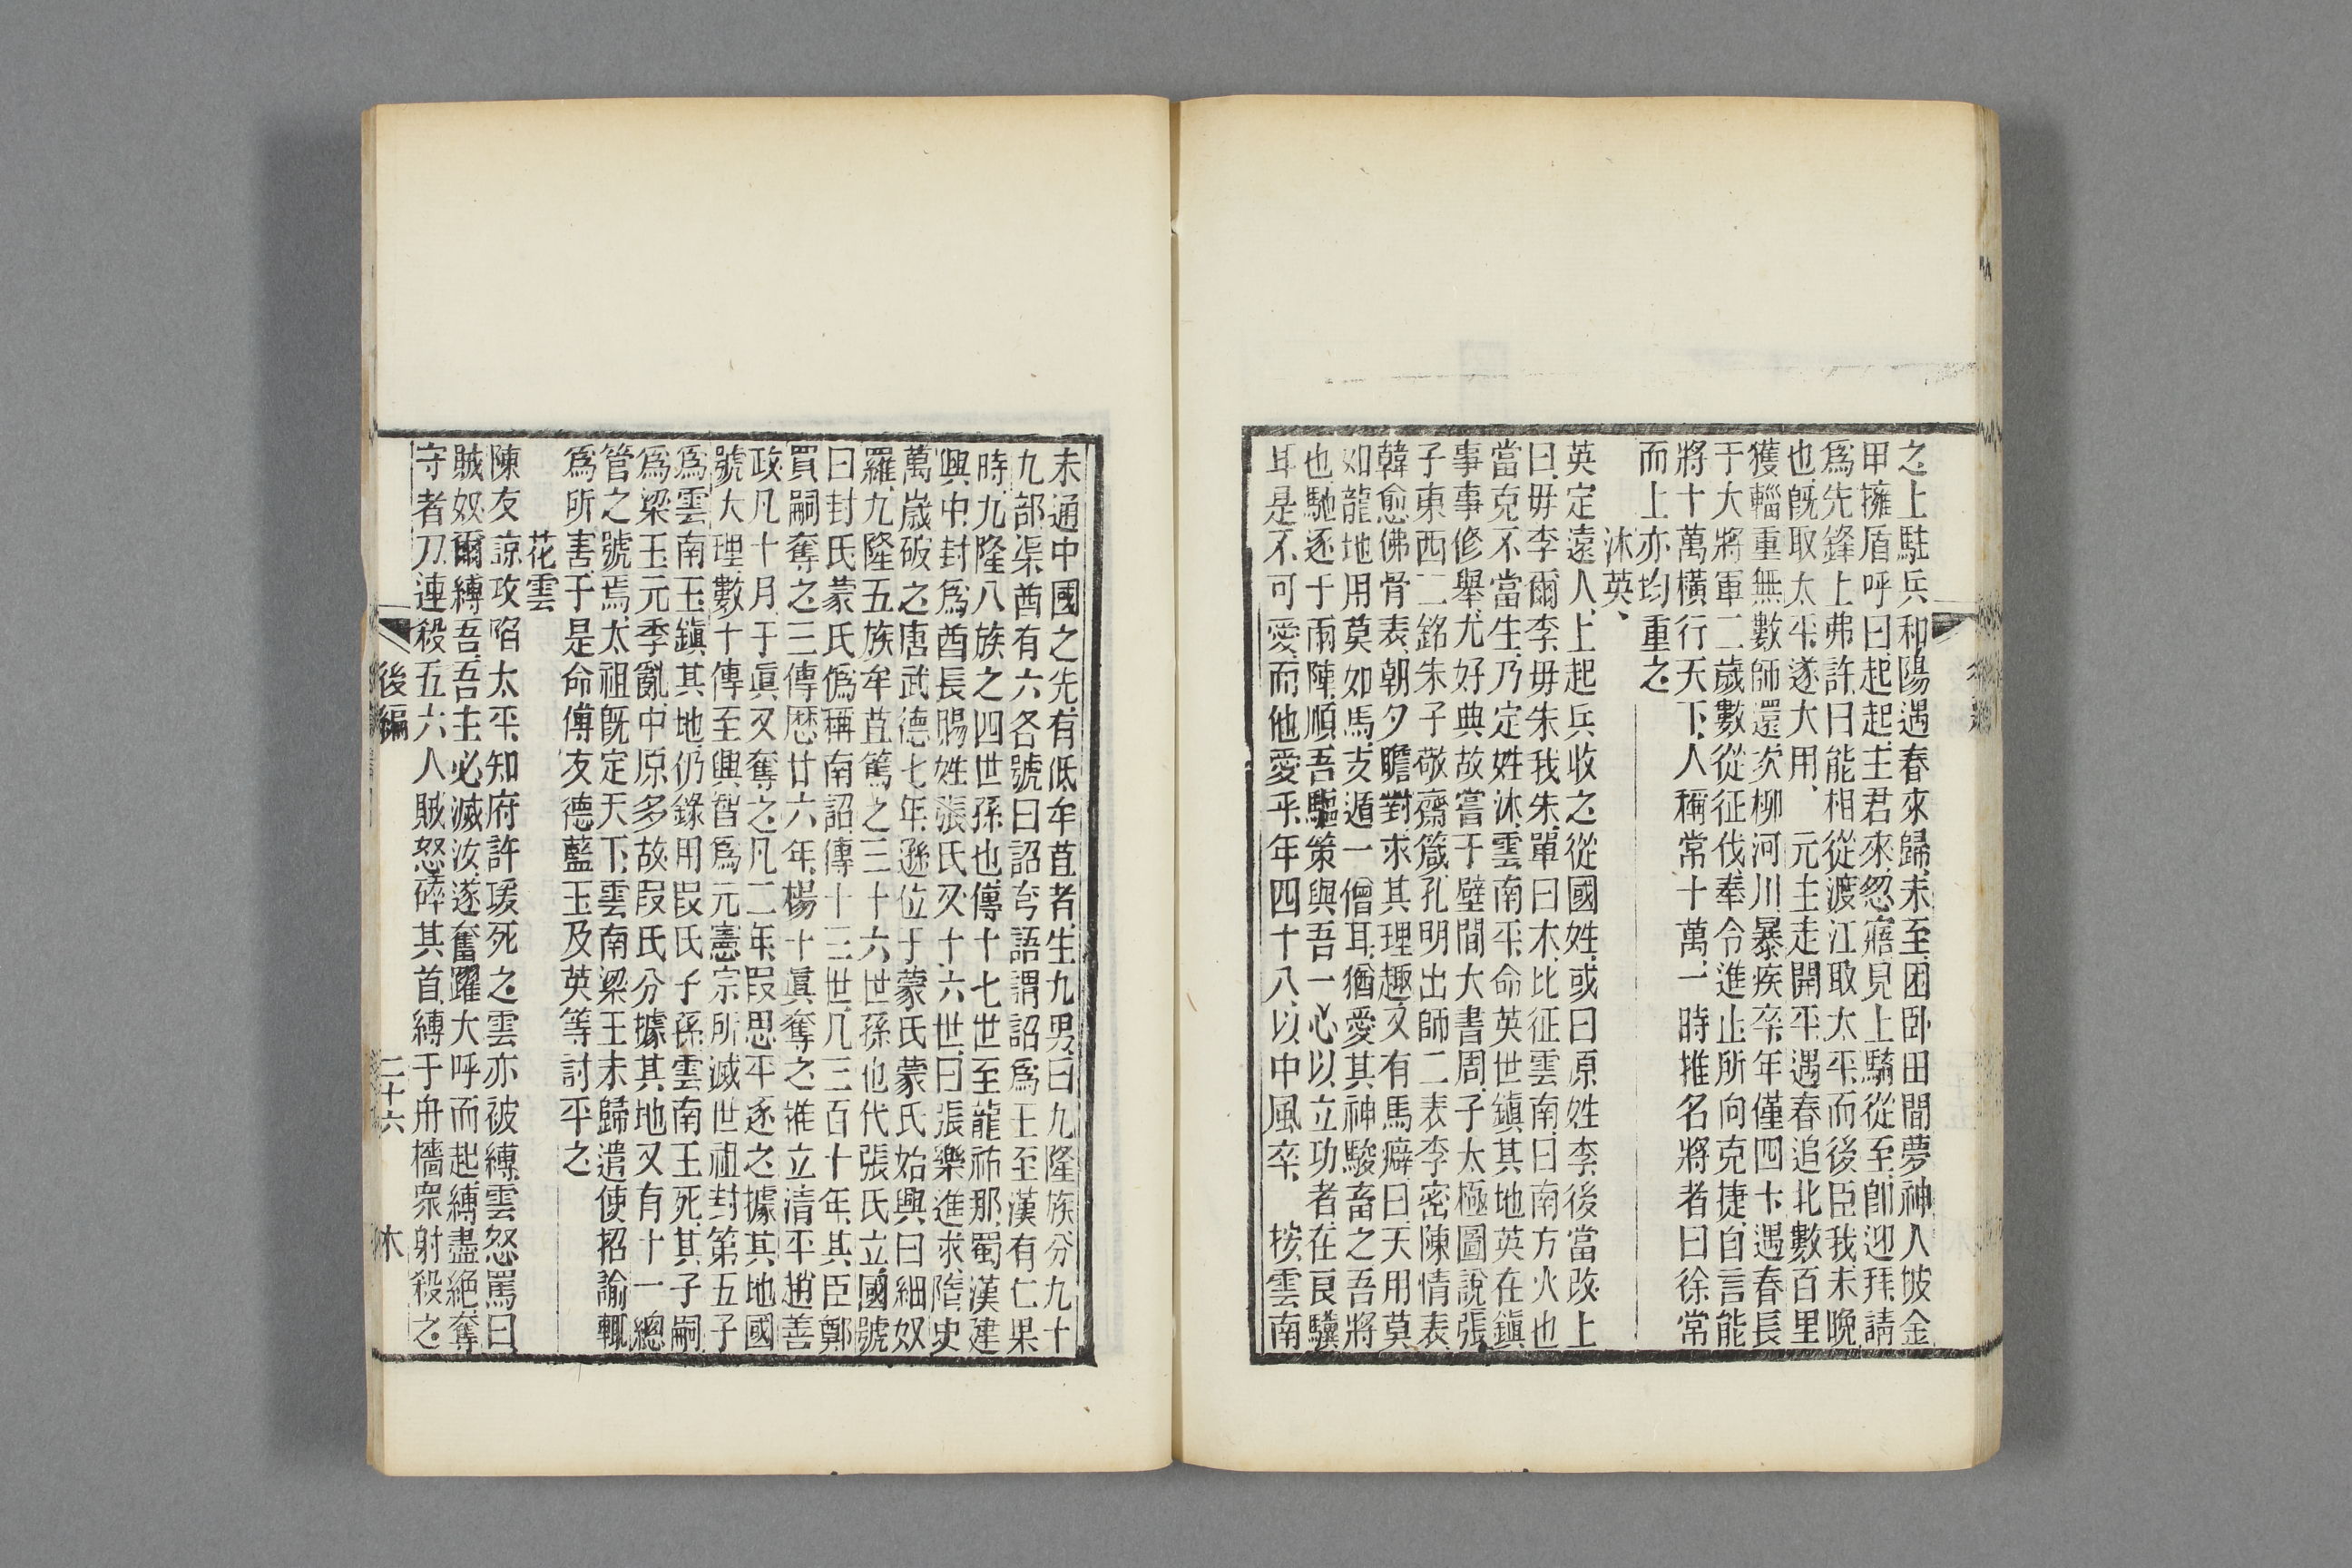 之上駐兵和陽遇春來歸未至困卧田間夢神人披金
甲擁盾呼曰起起主君來忽寤見上騎從至卽迎拜請
爲先鋒上弗許曰能相從渡江取太平而後臣我未晚
也旣取太平遂大用　元主走開平遇春追北數百里
獲輜重無數師還次柳河川暴疾卒年僅四十遇春長
于大將軍二歲數從征伐奉令進止所向克捷自言能
將十萬橫行天下人稱常十萬一時推名將者曰徐常
而上亦均重之
沐英
英定遠人上起兵收之從國姓或曰原姓李後當改上
曰毋李爾李毋朱我朱單曰木比征雲南曰南方火也
當克不當生乃定姓沐雲南平命英世鎮其地英在鎮
事事修舉尤好典故嘗于壁間大書周子太極圖說張
子東西二銘朱子敬齋箴孔明出師二表李密陳情表
韓愈佛骨表朝夕瞻對求其理趣又有馬癖曰天用莫
如龍地用莫如馬支遁一僧耳猶愛其神駿畜之吾將
也馳逐于兩陣順吾驅策與吾一心以立功者在良驥
耳是不可愛而他愛乎年四十八以中風卒　按雲南
未通中國之先有低牟苴者生九男曰九隆族分九十
九部渠酋有六各號曰詔夸語謂詔爲王至漢有仁果
時九隆八族之四世孫也傳十七世至龍祐那蜀漢建
興中封爲酋長賜姓張氏又十六世曰張樂進求隋史
萬歲破之唐武德七年遜位于蒙氏蒙氏始興曰細奴
羅九隆五族牟苴篤之三十六世孫也代張氏立國號
曰封氏蒙氏僞稱南詔傳十三世凡三百十年其臣鄭
買嗣奪之三傳歷廿六年楊十眞奪之推立清平趙善
政凡十月于眞又奪之凡二年叚思平逐之據其地國
號大理數十傳至興智爲元憲宗所滅世祖封第五子
爲雲南王鎮其地仍錄用叚氏子孫雲南王死其子嗣
爲梁王元季亂中原多故叚氏分據其地又有十一總
管之號焉太祖旣定天下雲南梁王未歸遣使招諭輒
爲所害于是命傅友德藍玉及英等討平之
花雲
陳友諒攻陷太平知府許瑗死之雲亦被縛雲怒罵曰
賊奴爾縛吾吾主必滅汝遂奮躍大呼而起縛盡絕奪
守者刀連殺五六人賊怒碎其首縛于舟檣衆射殺之
後編　二十六　木